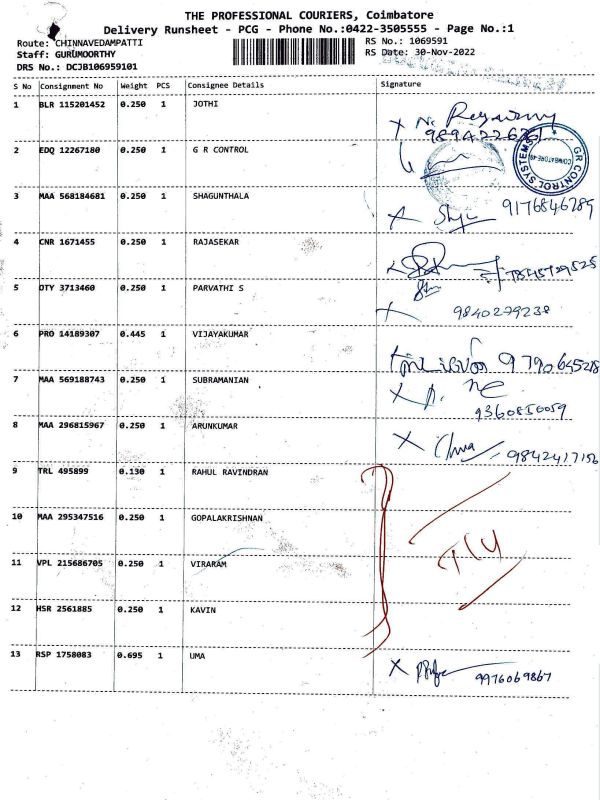 THE PROFESSIONAL COURIERS, Coimbatore
Delivery Runsheet - PCG - Phone No.:0422-3505555 - Page No.:1
Route: CHINNAVEDAMPATTI RS No.: 1069591
Staff: GURUMOORTHY RS Date: 30-Nov-2022
DRS No.: DCJB106959101
S No Consignment No Weight PCS Consignee Details Signature
1 BLR 115201452 0.250 1 JOTHI
2 EDQ 12267180 0.250 1 G R CONTROL
GR CONTROL SYSTEMS
COIMBATORE-49
3 MAA 568184681 0.250 1 SHAGUNTHALA
9176846289
4 CNR 1671455 0.250 1 RAJASEKAR
5 DTY 3713460 0.250 1 PARVATHI S
9840279238
6 PRO 14189307 0.445 1 VIJAYAKUMAR
7 MAA 569188743 0.250 1 SUBRAMANIAN
9360850059
8 MAA 296815967 0.250 1 ARUNKUMAR
9842417156
9 TRL 495899 0.130 1 RAHUL RAVINDRAN
10 MAA 295347516 0.250 1 GOPALAKRISHNAN
11 VPL 215686705 0.250 1 VIRARAM
12 HSR 2561885 0.250 1 KAVIN
13 RSP 1758083 0.695 1 UMA
9976069867